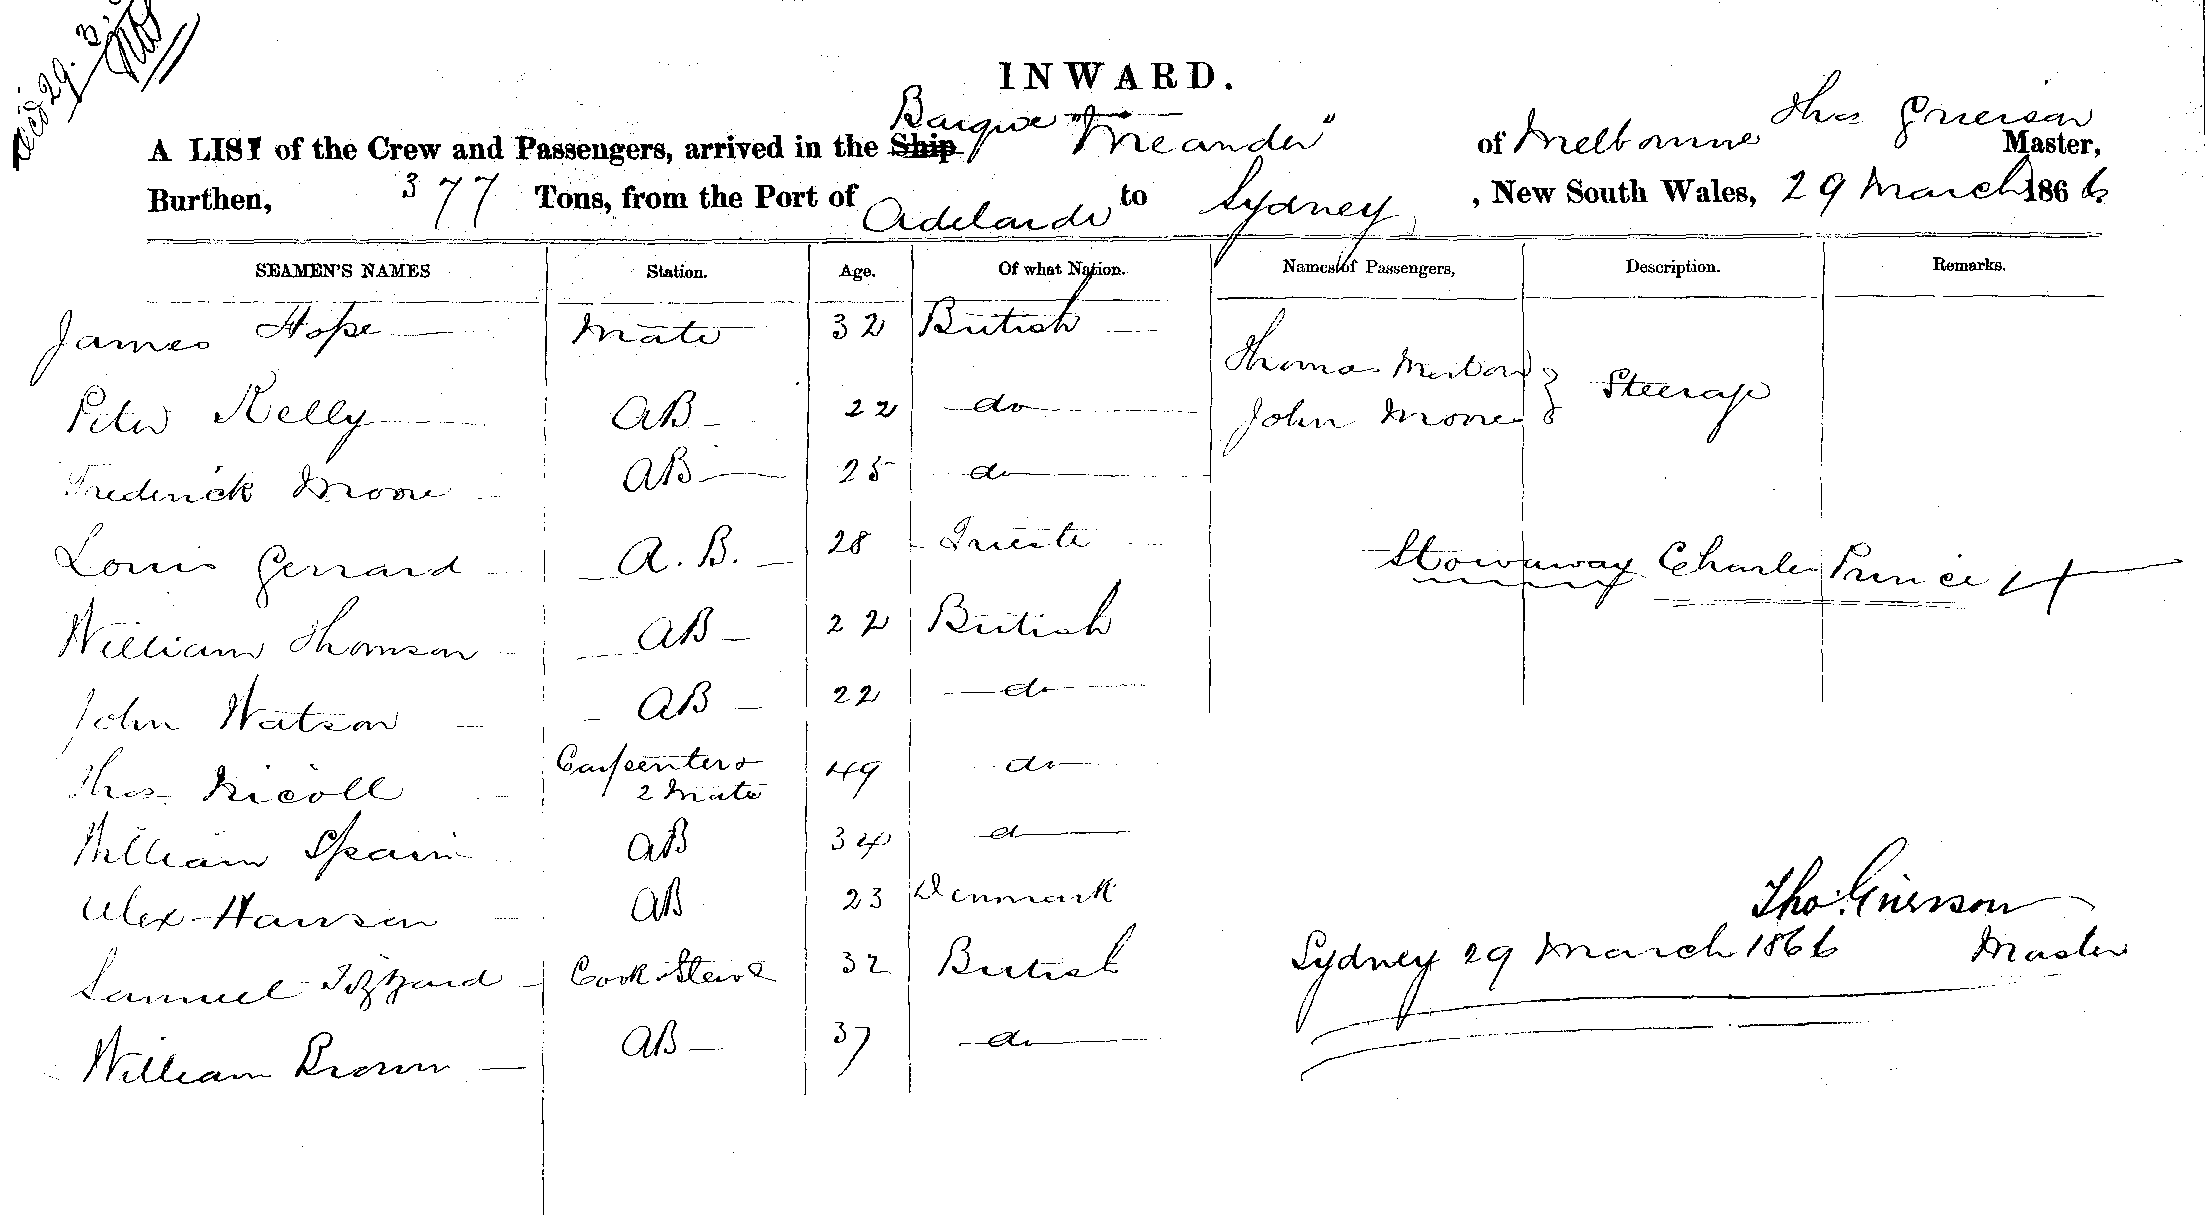 recd 29.3.
INWARD.
A LIST of the Crew and Passengers, arrived in the Ship Barque "Meander" of Melbourne Thos Grierson Master,
Burthen, 377 Tons, from the Port of Adelaide to Sydney, New South Wales, 29 March 1866
SEAMEN'S NAMES Station. Age. Of what Nation. Names of Passengers, Description. Remarks.
James Hope Mate 32 British
Thomas
Peter Kelly AB 22 do John Moore } Steerage
Frederick Moore AB 25 do
Louis Gerrard A.B. 28 Trieste Stowaway Charles Prince
William Thomson AB 22 British
John Watson AB 22 do
Thos Nicoll Carpenter & 2 Mate 49 do
William Spain AB 34 do
Alex Hansen AB 23 Denmark
Thos. Grierson
Samuel Izzard Cook & Stewd 32 British
Sydney 29 March 1866 Master
William Brown AB 37 do